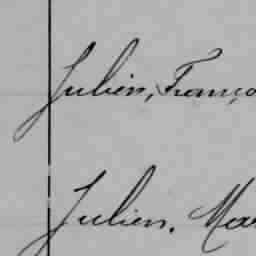 Julien, Franço
Julien. Ma